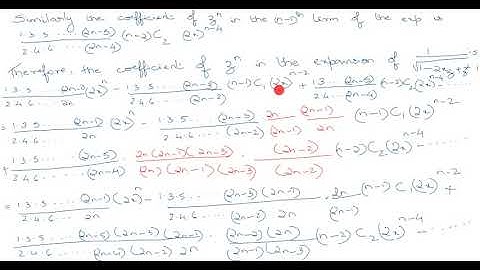 Similarly the coefficient of z^n in the (n-1)^th term of the exp is
1·3·5 ... (2n-5) / 2·4·6 ... (2n-4) (n-2)C_2 (2x)^{n-4}
Therefore, the coefficient of z^n in the expansion of 1/√(1-2xz+z²) is
1·3·5 ... (2n-1) / 2·4·6 ... 2n (2x)^n - 1·3·5 ... (2n-3) / 2·4·6 ... (2n-2) (n-1)C_1 (2x)^{n-2} + 1·3·5 ... (2n-5) / 2·4·6 ... (2n-4) (n-2)C_2 (2x)^{n-4} ......
= 1·3·5 ... (2n-1) / 2·4·6 ... 2n (2x)^n - 1·3·5 ... (2n-3) / 2·4·6 ... (2n-2) 2n/2n (2n-1)/(2n-1) (n-1)C_1 (2x)^{n-2}
+ 1·3·5 ... (2n-5) / 2·4·6 ... (2n-4) · 2n(2n-1)(2n-3) / (2n)(2n-1)(2n-3) · (2n-2)/(2n-2) (n-2)C_2 (2x)^{n-4} ......
= 1·3·5 ... (2n-1) / 2·4·6 ... 2n (2x)^n - 1·3·5 ... (2n-3)(2n-1) / 2·4·6 ... (2n-2) 2n · 2n/(2n-1) (n-1)C_1 (2x)^{n-2} +
1·3·5 ... (2n-5)(2n-3)(2n-1) / 2·4·6 ... (2n-4)(2n-2) 2n · (2n-2)(2n) / (2n-1)(2n-3) (n-2)C_2 (2x)^{n-4} - ......